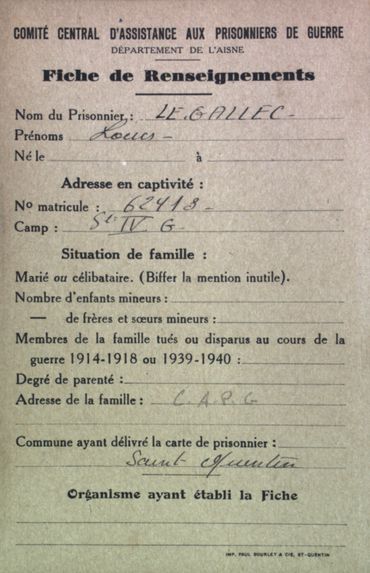 COMITÉ CENTRAL D'ASSISTANCE AUX PRISONNIERS DE GUERRE
DÉPARTEMENT DE L'AISNE
Fiche de Renseignements
Nom du Prisonnier : LE GALLEC -
Prénoms Louis -
Né le à
Adresse en captivité :
No matricule : 62413 -
Camp : St IV G -
Situation de famille :
Marié ou célibataire. (Biffer la mention inutile).
Nombre d'enfants mineurs :
— de frères et sœurs mineurs :
Membres de la famille tués ou disparus au cours de la
guerre 1914-1918 ou 1939-1940 :
Degré de parenté :
Adresse de la famille : C.A.P.G
Commune ayant délivré la carte de prisonnier :
Saint Quentin
Organisme ayant établi la Fiche
IMP. PAUL BOURLET & CIE, ST-QUENTIN